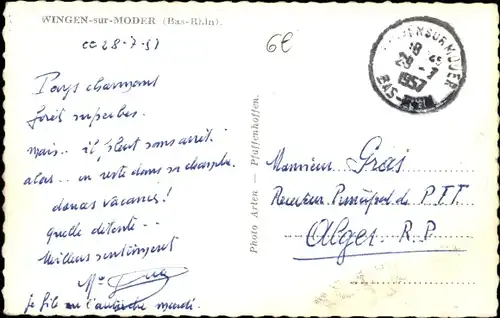 WINGEN-sur-MODER (Bas-Rhin).
ce 28-7-57
6E
WINGEN SUR MODER
18 45
29 - 7
1957
BAS-RHIN
Pays charmant
forêt superbes.
mais.. il pleut sans arrêt.
alors.. on reste dans sa chambre.
vacances!
Quelle détente..
Meilleurs sentiments
Je file mardi.
Photo Arten — Pfaffenhoffen.
Monsieur Gras
Receveur Principal des P.T.T.
Alger R.P.